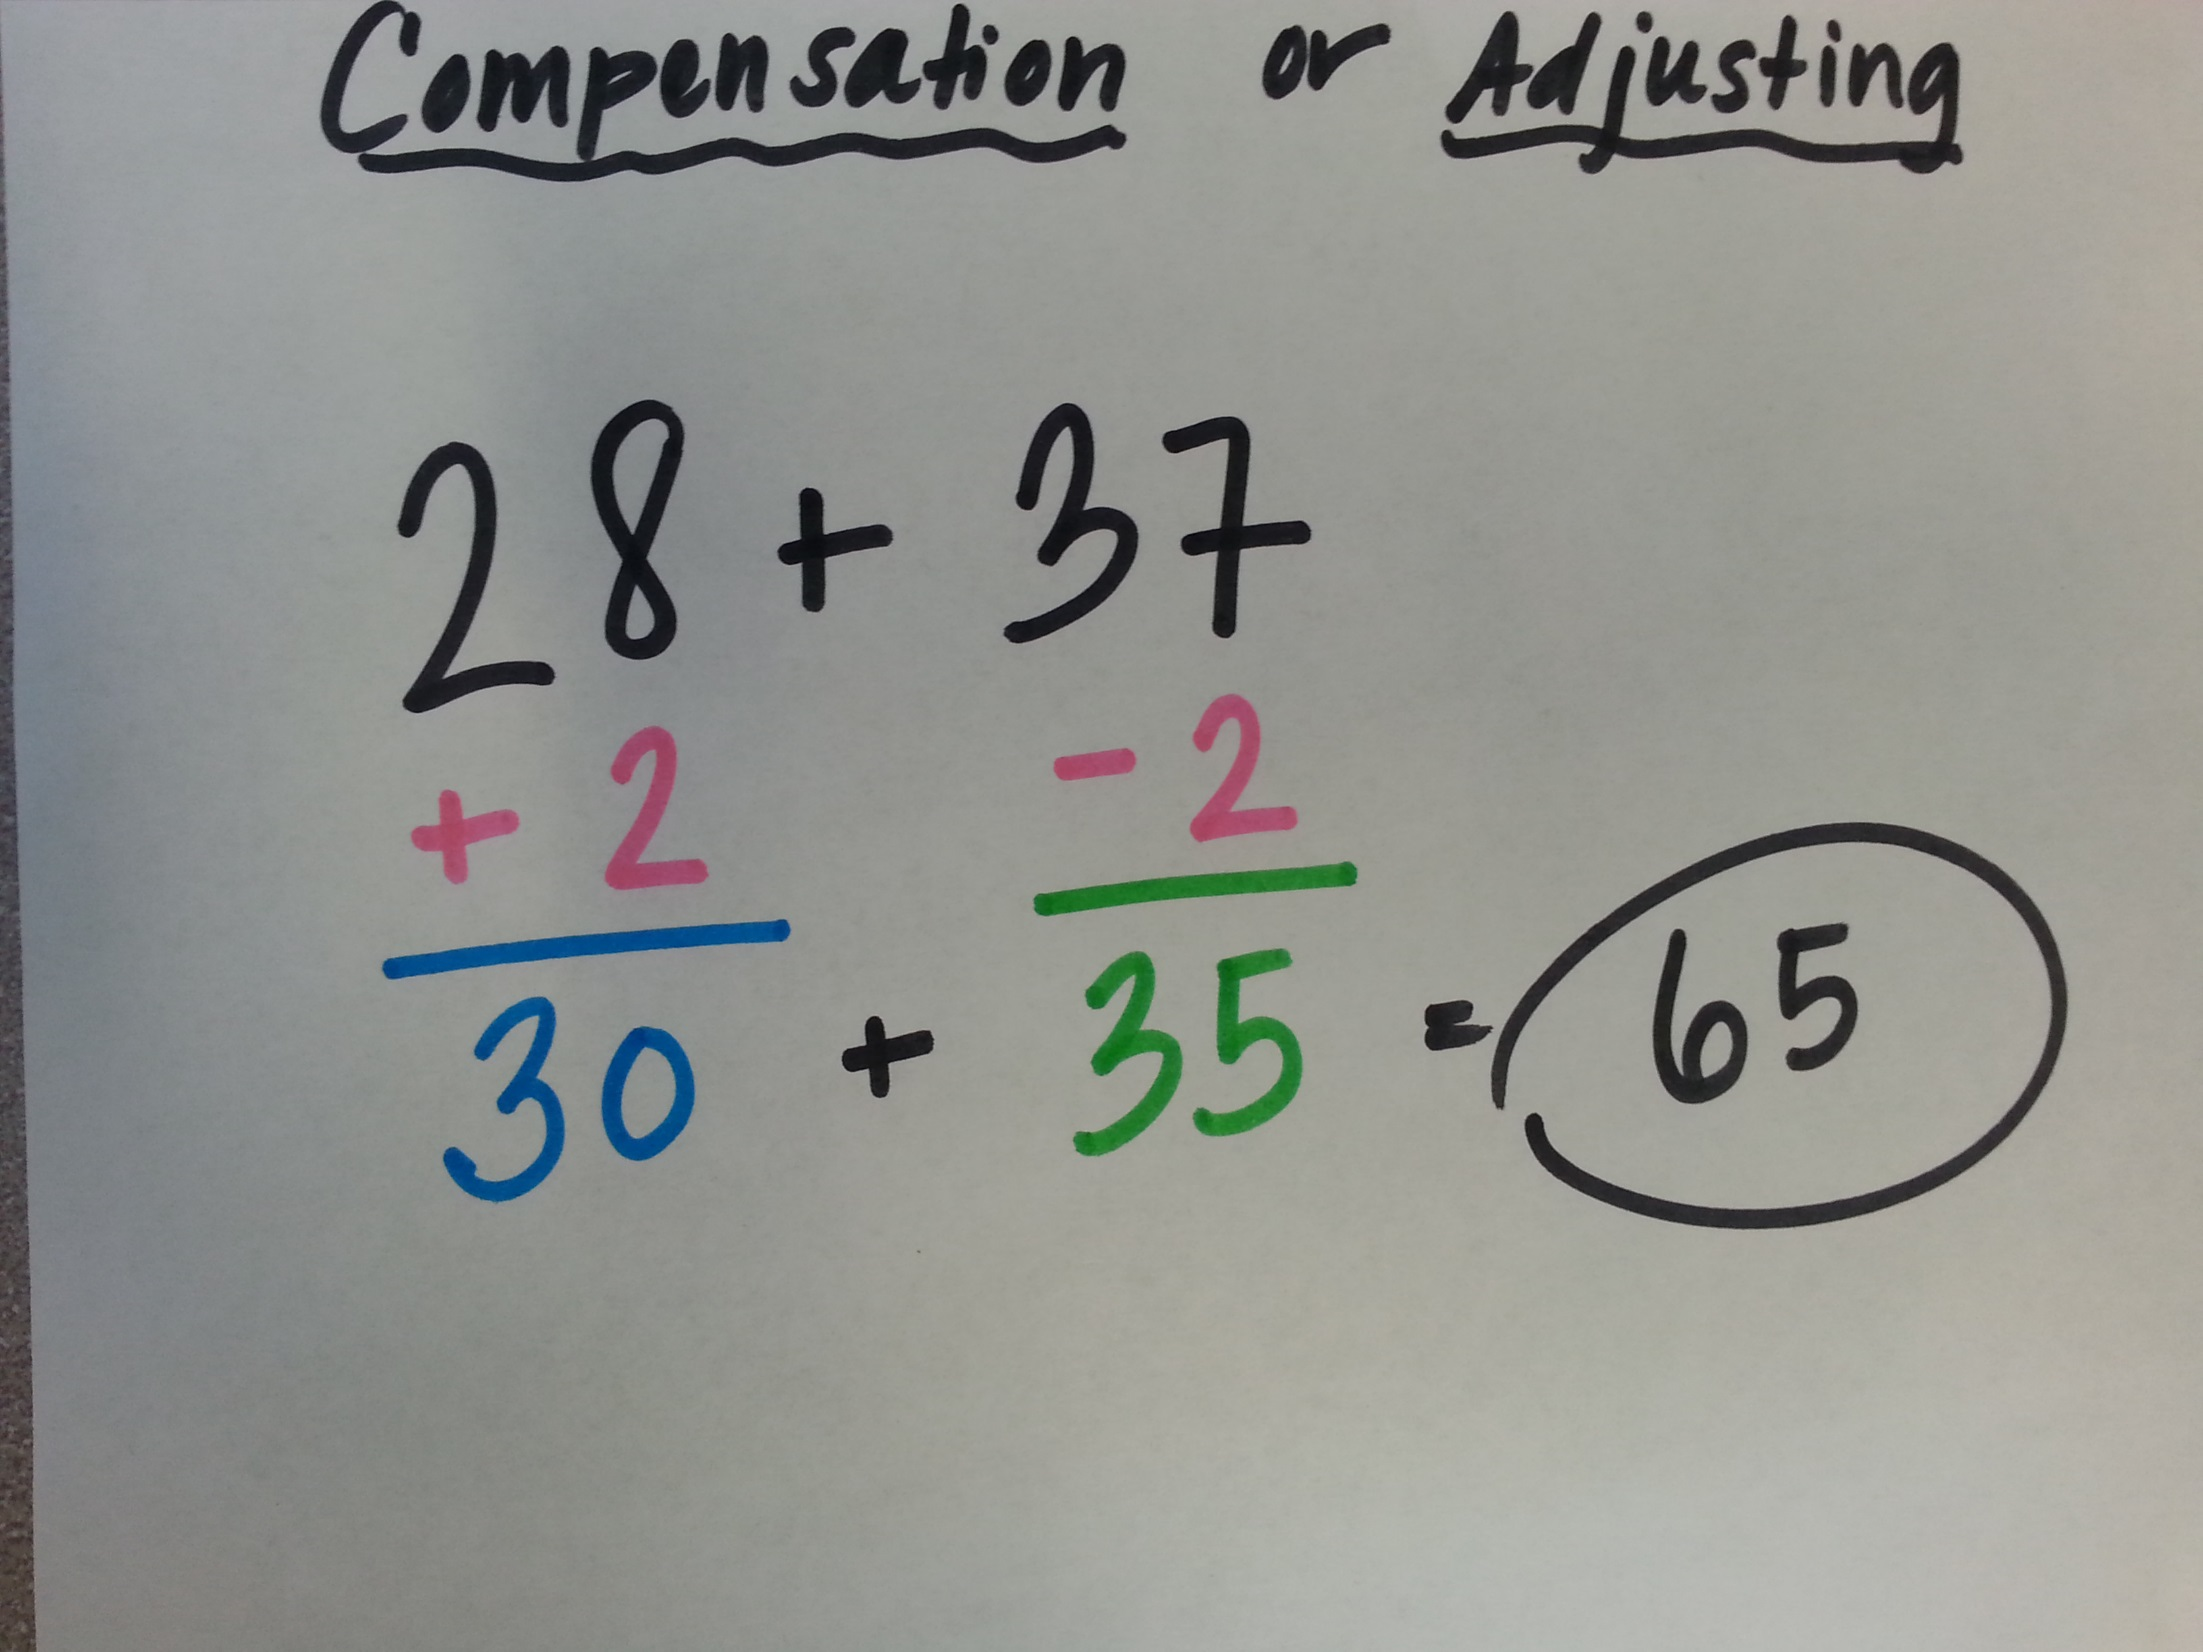 Compensation or Adjusting
28 + 37
+ 2 - 2
30 + 35 = 65